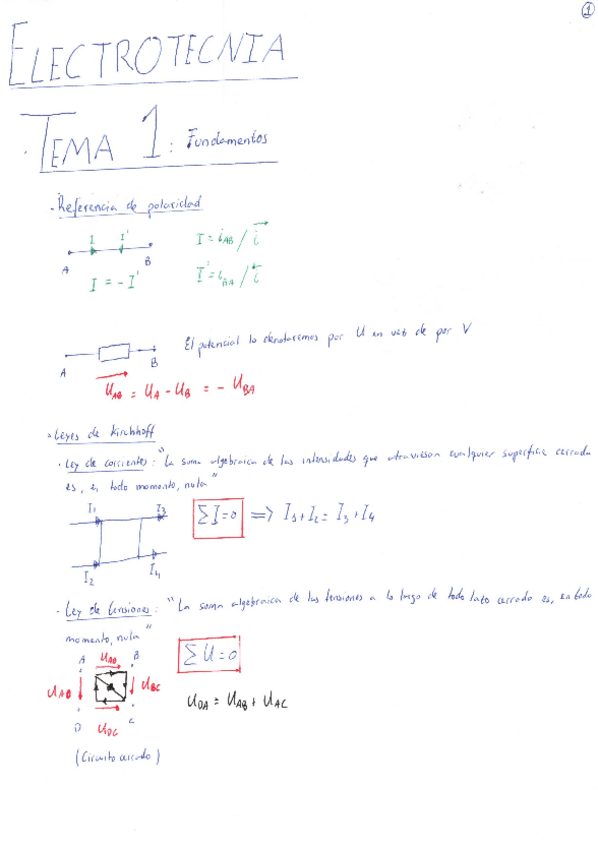 1
ELECTROTECNIA
TEMA 1: Fundamentos
• Referencia de polaridad
I I'
A B
I = -I'
I = i_AB / i→
I' = i_BA / i←
El potencial lo denotaremos por U en vez de por V
A B
U_AB = U_A - U_B = - U_BA
• Leyes de Kirchhoff
• Ley de corrientes: "La suma algebraica de las intensidades que atraviesan cualquier superficie cerrada
es, en todo momento, nula"
I1 I3
I2 I4
ΣI=0 ⟹ I1+I2 = I3+I4
• Ley de tensiones: "La suma algebraica de las tensiones a lo largo de todo lazo cerrado es, en todo
momento, nula"
A U_AB B
U_AD U_BC
D U_DC C
ΣU=0
U_DA = U_AB + U_AC
(Circuito cerrado)